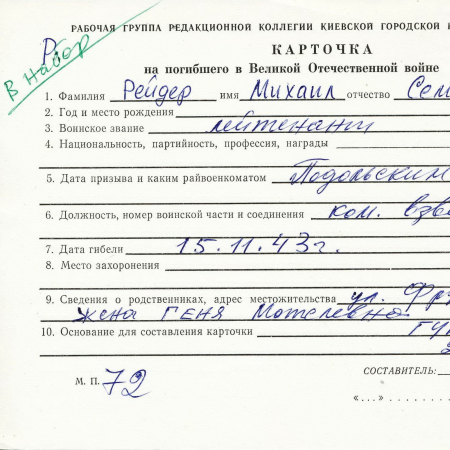 РАБОЧАЯ ГРУППА РЕДАКЦИОННОЙ КОЛЛЕГИИ КИЕВСКОЙ ГОРОДСКОЙ К
Р.
В набор
КАРТОЧКА
на погибшего в Великой Отечественной войне
1. Фамилия Рейдер имя Михаил отчество Сем
2. Год и место рождения
3. Воинское звание лейтенант
4. Национальность, партийность, профессия, награды
5. Дата призыва и каким райвоенкоматом Подольским
6. Должность, номер воинской части и соединения ком. взво
7. Дата гибели 15.11.43г.
8. Место захоронения
9. Сведения о родственниках, адрес местожительства ул. Фру
жена Геня Мотелевна
10. Основание для составления карточки ГУК
СОСТАВИТЕЛЬ:
М. П. 72
«...»